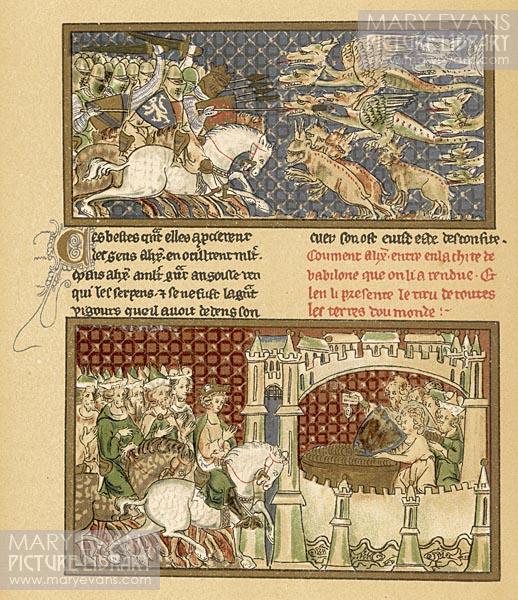 MARY EVANS
PICTURE LIBRARY
www.maryevans.com
Ces bestes quāt elles apcierent
les gens alix̄. en ocistrent mlt̄.
alix̄. a mlt̄ grāt angousse ven
qui les serpens. ⁊ se ne fust la grāt
vigours que il avoit dedens son
cuer son ost eust este desconfite.
Coument alix̄. entre en la chite de
babilone que on li a rendue. Et
len li presente le treu de toutes
les terres dou monde :-
MARY EVANS
PICTURE LIBRARY
www.maryevans.com
MARY EVANS
PICTURE LIBRARY
www.maryevans.com